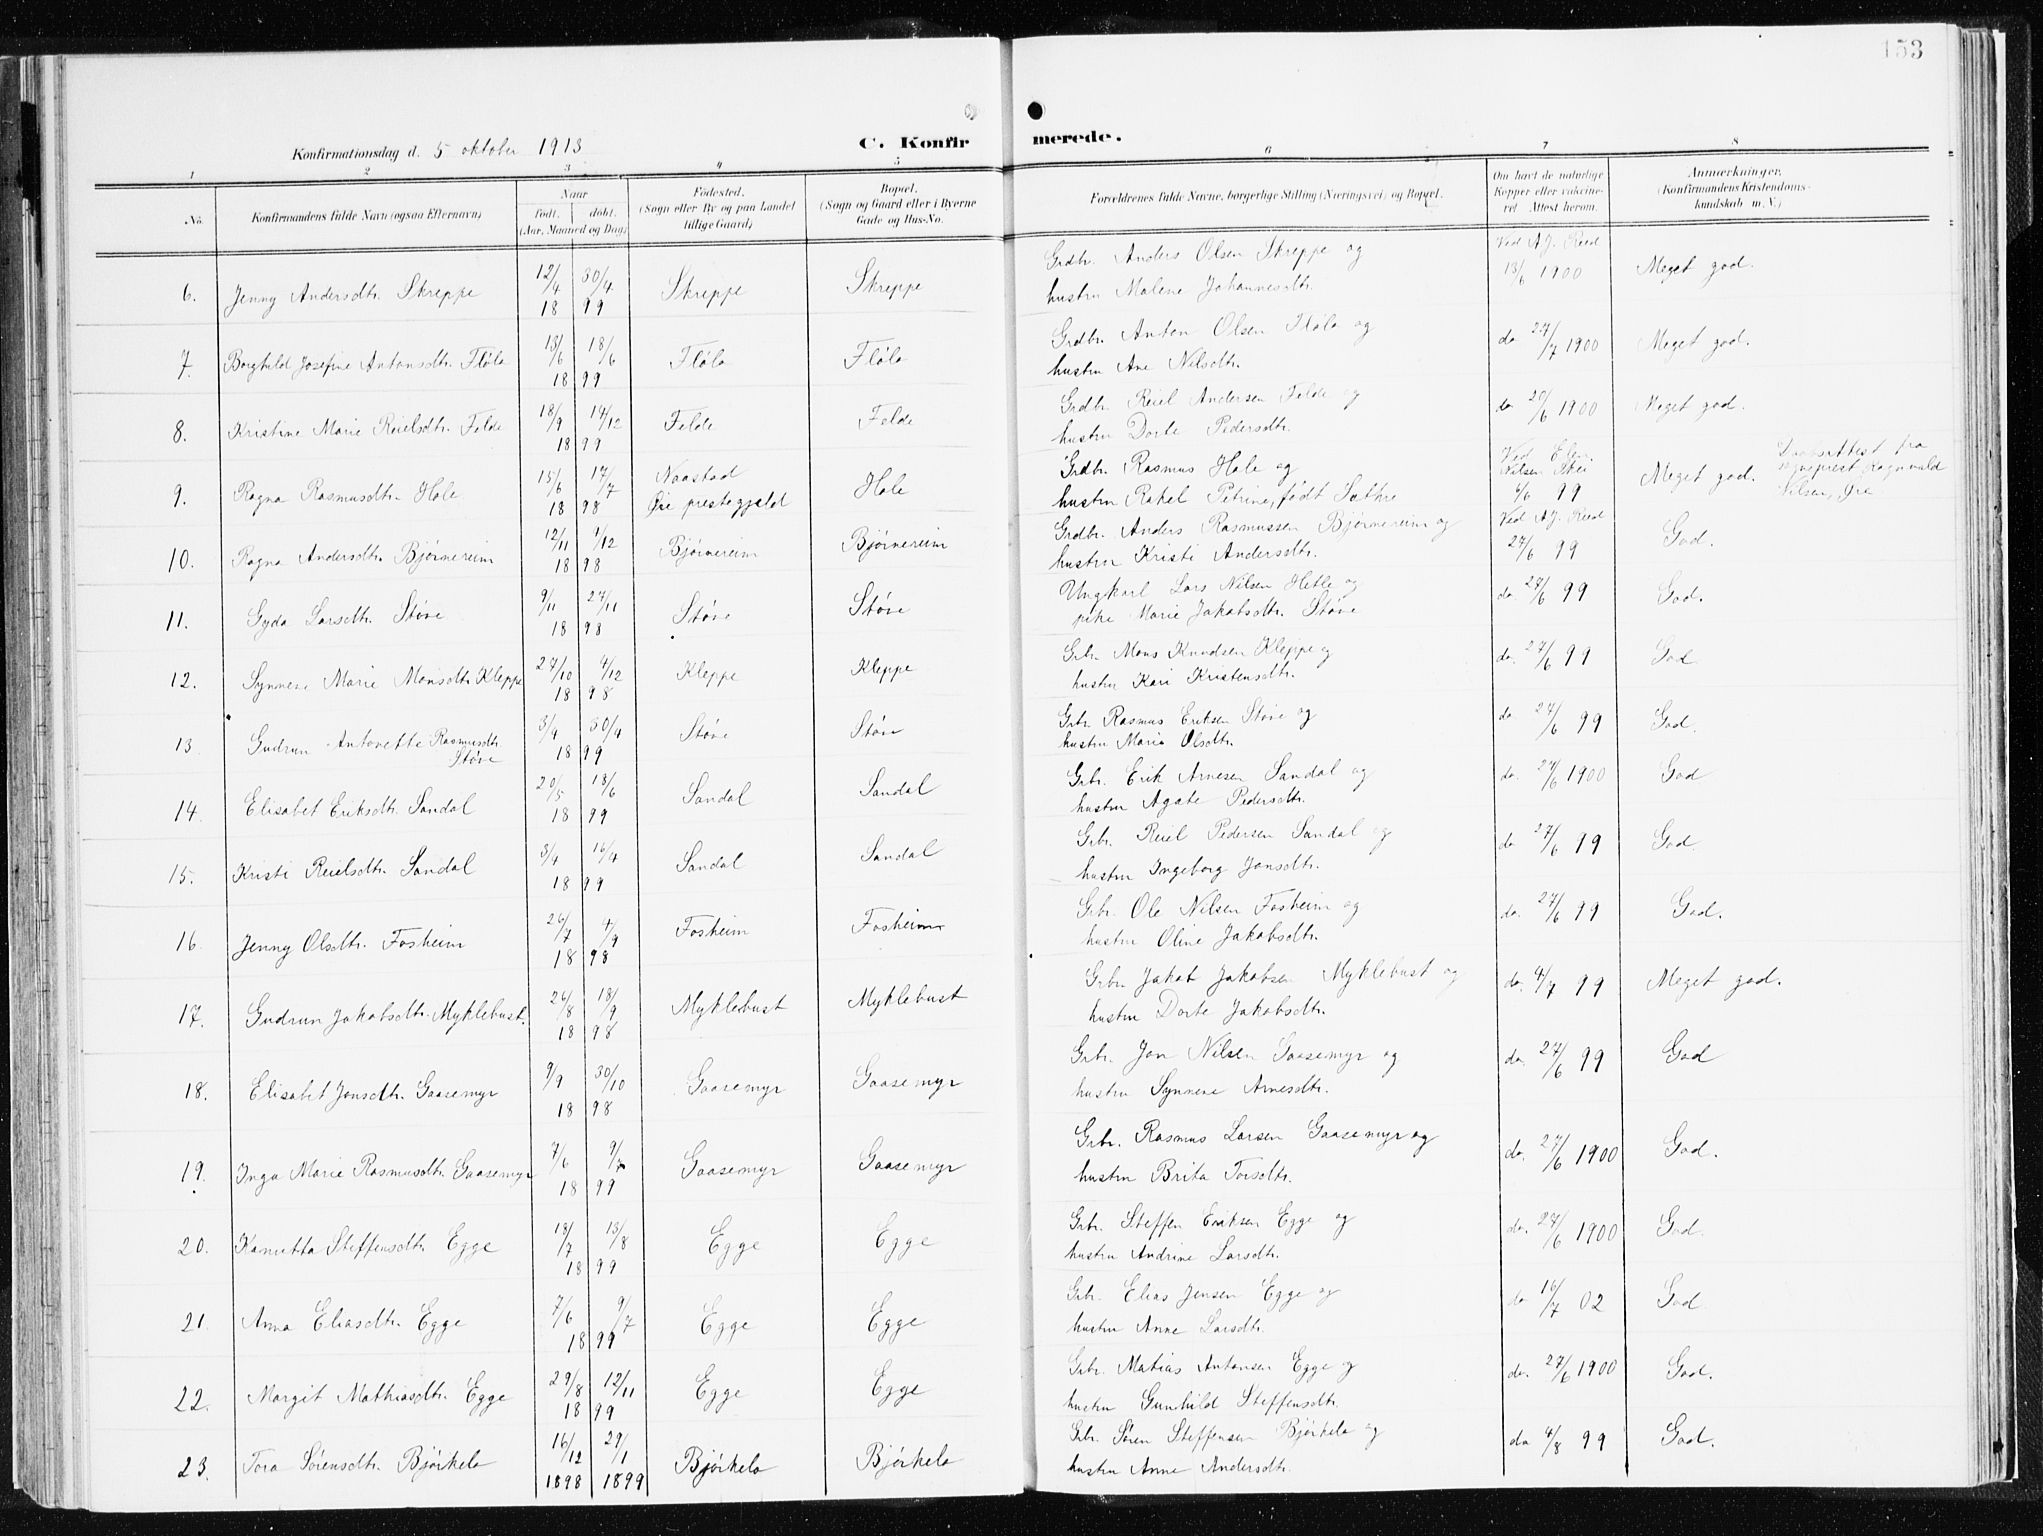 153
Konfirmationsdag d. 5 oktober 1913
C. Konfirmerede.
1 2 3 4 5 6 7 8
No. Konfirmandens fulde Navn (ogsaa Efternavn) Naar født. døbt. (Aar, Maaned og Dag) Fødested. (Sogn eller By og paa Landet tillige Gaard) Bopæl. (Sogn og Gaard eller i Byerne Gade og Hus-No. Forældrenes fulde Navne, borgerlige Stilling (Næringsvei) og Bopæl. Om havt de naturlige Kopper eller vakcineret. Attest herom. Anmærkninger. (Konfirmandens Kristendomskundskab m. V.)
6. Jenny Andersdtr. Skreppe 12/4 30/4 1899 Skreppe Skreppe Grdbr. Anders Olsen Skreppe og Ved A.J. Reed
hustru Malene Johannesdtr. 13/6 1900 Meget god.
7. Borghild Josefine Antonsdtr. Fløla 13/6 18/6 1899 Fløla Fløla Grdbr. Anton Olsen Fløla og do 27/7 1900 Meget god.
hustru Ane Nilsdtr.
8. Kristine Marie Reielsdtr. Felde 18/9 14/12 1899 Felde Felde Grdbr. Reiel Andersen Felde og do 20/6 1900 Meget god.
hustru Dorte Pedersdtr.
9. Ragna Rasmusdtr. Hole 15/6 17/7 1898 Naastad Øre prestegjeld Hole Grdbr. Rasmus Hole og Ved Elen Nilsen 6/6 99 Meget god. Daabsattest fra sogneprest Ragnvald Nilsen, Øre
hustru Rakel Petrine, født Sæthre
10. Ragna Andersdtr. Bjørnereim 12/11 1/12 1898 Bjørnereim Bjørnereim Grdbr. Anders Rasmussen Bjørnereim og Ved A.J. Reed
hustru Kristi Andersdtr. 27/6 99 God.
11. Gyda Larsdtr. Støve 9/11 27/11 1898 Støve Støve Ungkarl Lars Nilsen Hetle og do. 27/6 99 God.
pike Marie Jakobsdtr. Støve
12. Synneve Marie Monsdtr. Kleppe 27/10 4/12 1898 Kleppe Kleppe Grbr. Mons Knudsen Kleppe og do. 27/6 99 God
hustru Kari Kristensdtr.
13. Gudrun Antonette Rasmusdtr. Støve 3/4 30/4 1899 Støve Støve Grbr. Rasmus Eriksen Støve og do 27/6 99 God.
hustru Marie Olsdtr.
14. Elisabet Eriksdtr. Sandal 20/5 18/6 1899 Sandal Sandal Grbr. Erik Arnesen Sandal og do. 27/6 1900 God
hustru Agate Pedersdtr.
15. Kristi Reielsdtr. Sandal 3/4 16/4 1899 Sandal Sandal Grbr. Reiel Pedersen Sandal og do 27/6 99 God.
hustru Ingeborg Jonsdtr.
16. Jenny Olsdtr. Fosheim 26/7 4/9 1898 Fosheim Fosheim Grbr. Ole Nilsen Fosheim og do. 27/6 99 God.
hustru Oline Jakobsdtr.
17. Gudrun Jakobsdtr. Myklebust. 26/8 18/9 1898 Myklebust Myklebust Grbr. Jakob Jakobsen Myklebust og do. 4/7 99 Meget god.
hustru Dorte Jakobsdtr.
18. Elisabet Jonsdtr. Gaasemyr 9/9 30/10 1898 Gaasemyr Gaasemyr Grbr. Jon Nilsen Gaasemyr og do. 27/6 99 God
hustru Synneve Arnesdtr.
19. Inga Marie Rasmusdtr. Gaasemyr 7/6 9/7 1899 Gaasemyr Gaasemyr Grbr. Rasmus Larsen Gaasemyr og do. 27/6 1900 God.
hustru Brita Torsdtr.
20. Kamitta Steffensdtr. Egge 18/7 13/8 1899 Egge Egge Grbr. Steffen Eriksen Egge og do. 27/6 1900 God.
hustru Andrine Larsdtr.
21. Anna Eliasdtr. Egge 7/6 9/7 1899 Egge Egge Grbr. Elias Jensen Egge og do 16/7 02 God
hustru Anne Larsdtr.
22. Margit Mathiasdtr. Egge 29/8 12/11 1899 Egge Egge Grbr. Matias Antonsen Egge og do. 27/6 1900 God.
hustru Gunhild Steffensdtr.
23. Tora Sørensdtr. Bjørkelo 16/12 1898 29/1 1899 Bjørkelo Bjørkelo Grbr. Søren Steffensen Bjørkelo og do 4/8 99 God.
hustru Anne Andersdtr.